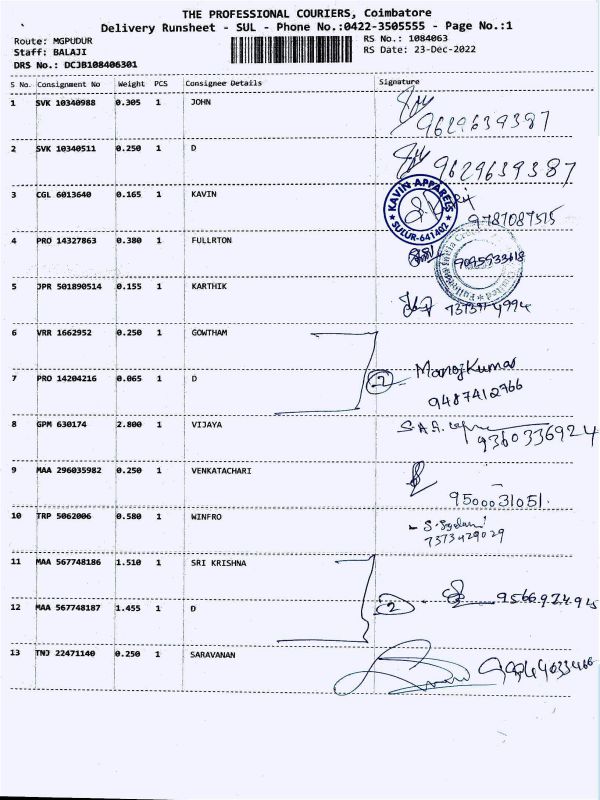 THE PROFESSIONAL COURIERS, Coimbatore
Delivery Runsheet - SUL - Phone No.:0422-3505555 - Page No.:1
Route: MGPUDUR RS No.: 1084063
Staff: BALAJI RS Date: 23-Dec-2022
DRS No.: DCJB108406301
S No. Consignment No Weight PCS Consignee Details Signature
1 SVK 10340988 0.305 1 JOHN
9629639387
2 SVK 10340511 0.250 1 D
9629639387
3 CGL 6013640 0.165 1 KAVIN
KAVIN APPARELS
SULUR-641402
9787087515
4 PRO 14327863 0.380 1 FULLRTON
9095933618
5 JPR 501890514 0.155 1 KARTHIK
6 VRR 1662952 0.250 1 GOWTHAM
7 PRO 14204216 0.065 1 D
Manoj Kumar
9487412766
8 GPM 630174 2.800 1 VIJAYA
9360336924
9 MAA 296035982 0.250 1 VENKATACHARI
9500031051.
10 TRP 5062006 0.580 1 WINFRO
7373429029
11 MAA 567748186 1.510 1 SRI KRISHNA
12 MAA 567748187 1.455 1 D
2 9566974915
13 TNJ 22471140 0.250 1 SARAVANAN